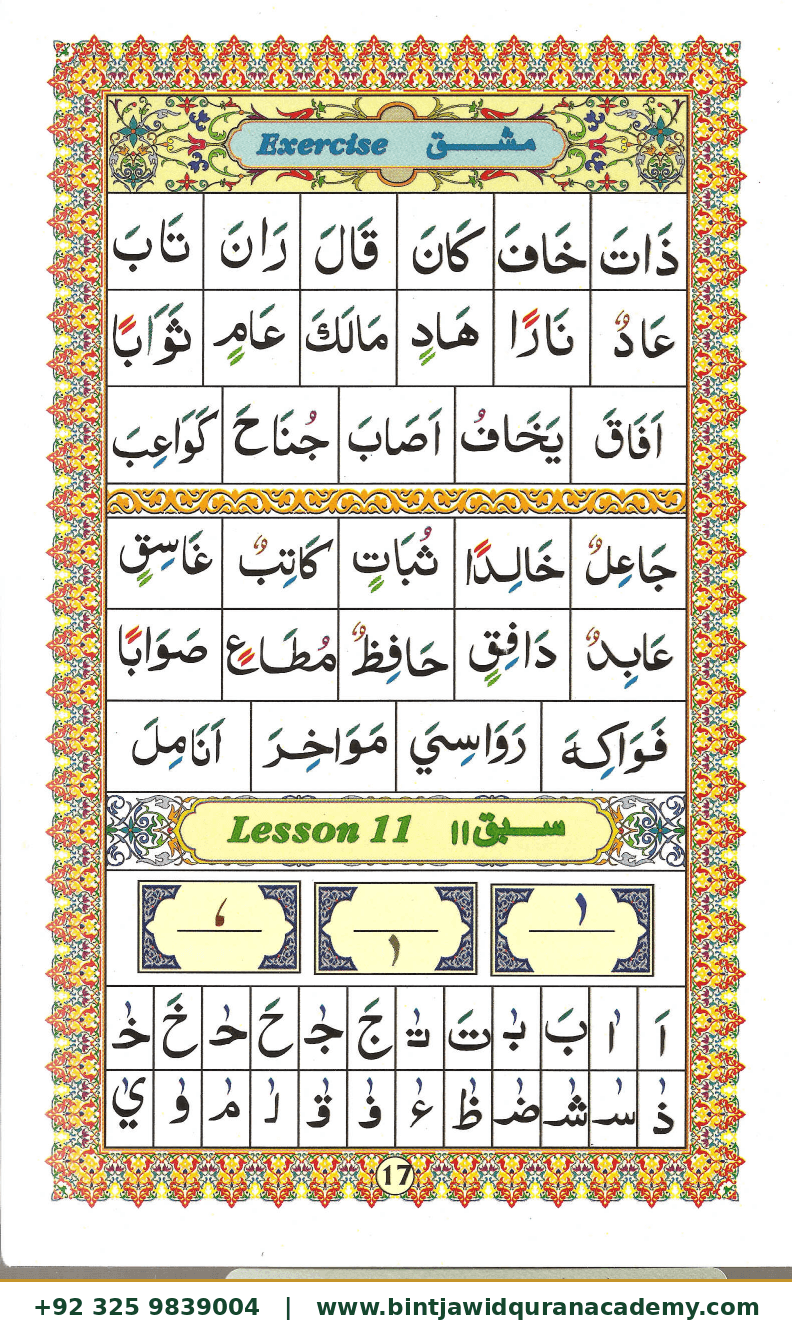 Exercise مشق
ذَاتَ خَافَ كَانَ قَالَ رَانَ تَابَ
عَادٌ نَارًا هَادٍ مَالَكَ عَامٍ ثَوَابًا
اَفَاقَ يَخَافُ اَصَابَ جُنَاحَ كَوَاعِبَ
جَاعِلٌ خَالِدًا ثُبَاتٍ كَاتِبٌ غَاسِقٍ
عَابِدٌ دَافِقٍ حَافِظٌ مُطَاعٍ صَوَابًا
فَوَاكِهَ رَوَاسِيَ مَوَاخِرَ اَنَامِلَ
Lesson 11 سبق ۱۱
اَ اٰ بَ بٰ تَ تٰ جَ جٰ حَ حٰ خَ خٰ
ذٰ سٰ شٰ ضٰ ظٰ عٰ فٰ قٰ لٰ مٰ وٰ يٰ
17
+92 325 9839004 | www.bintjawidquranacademy.com